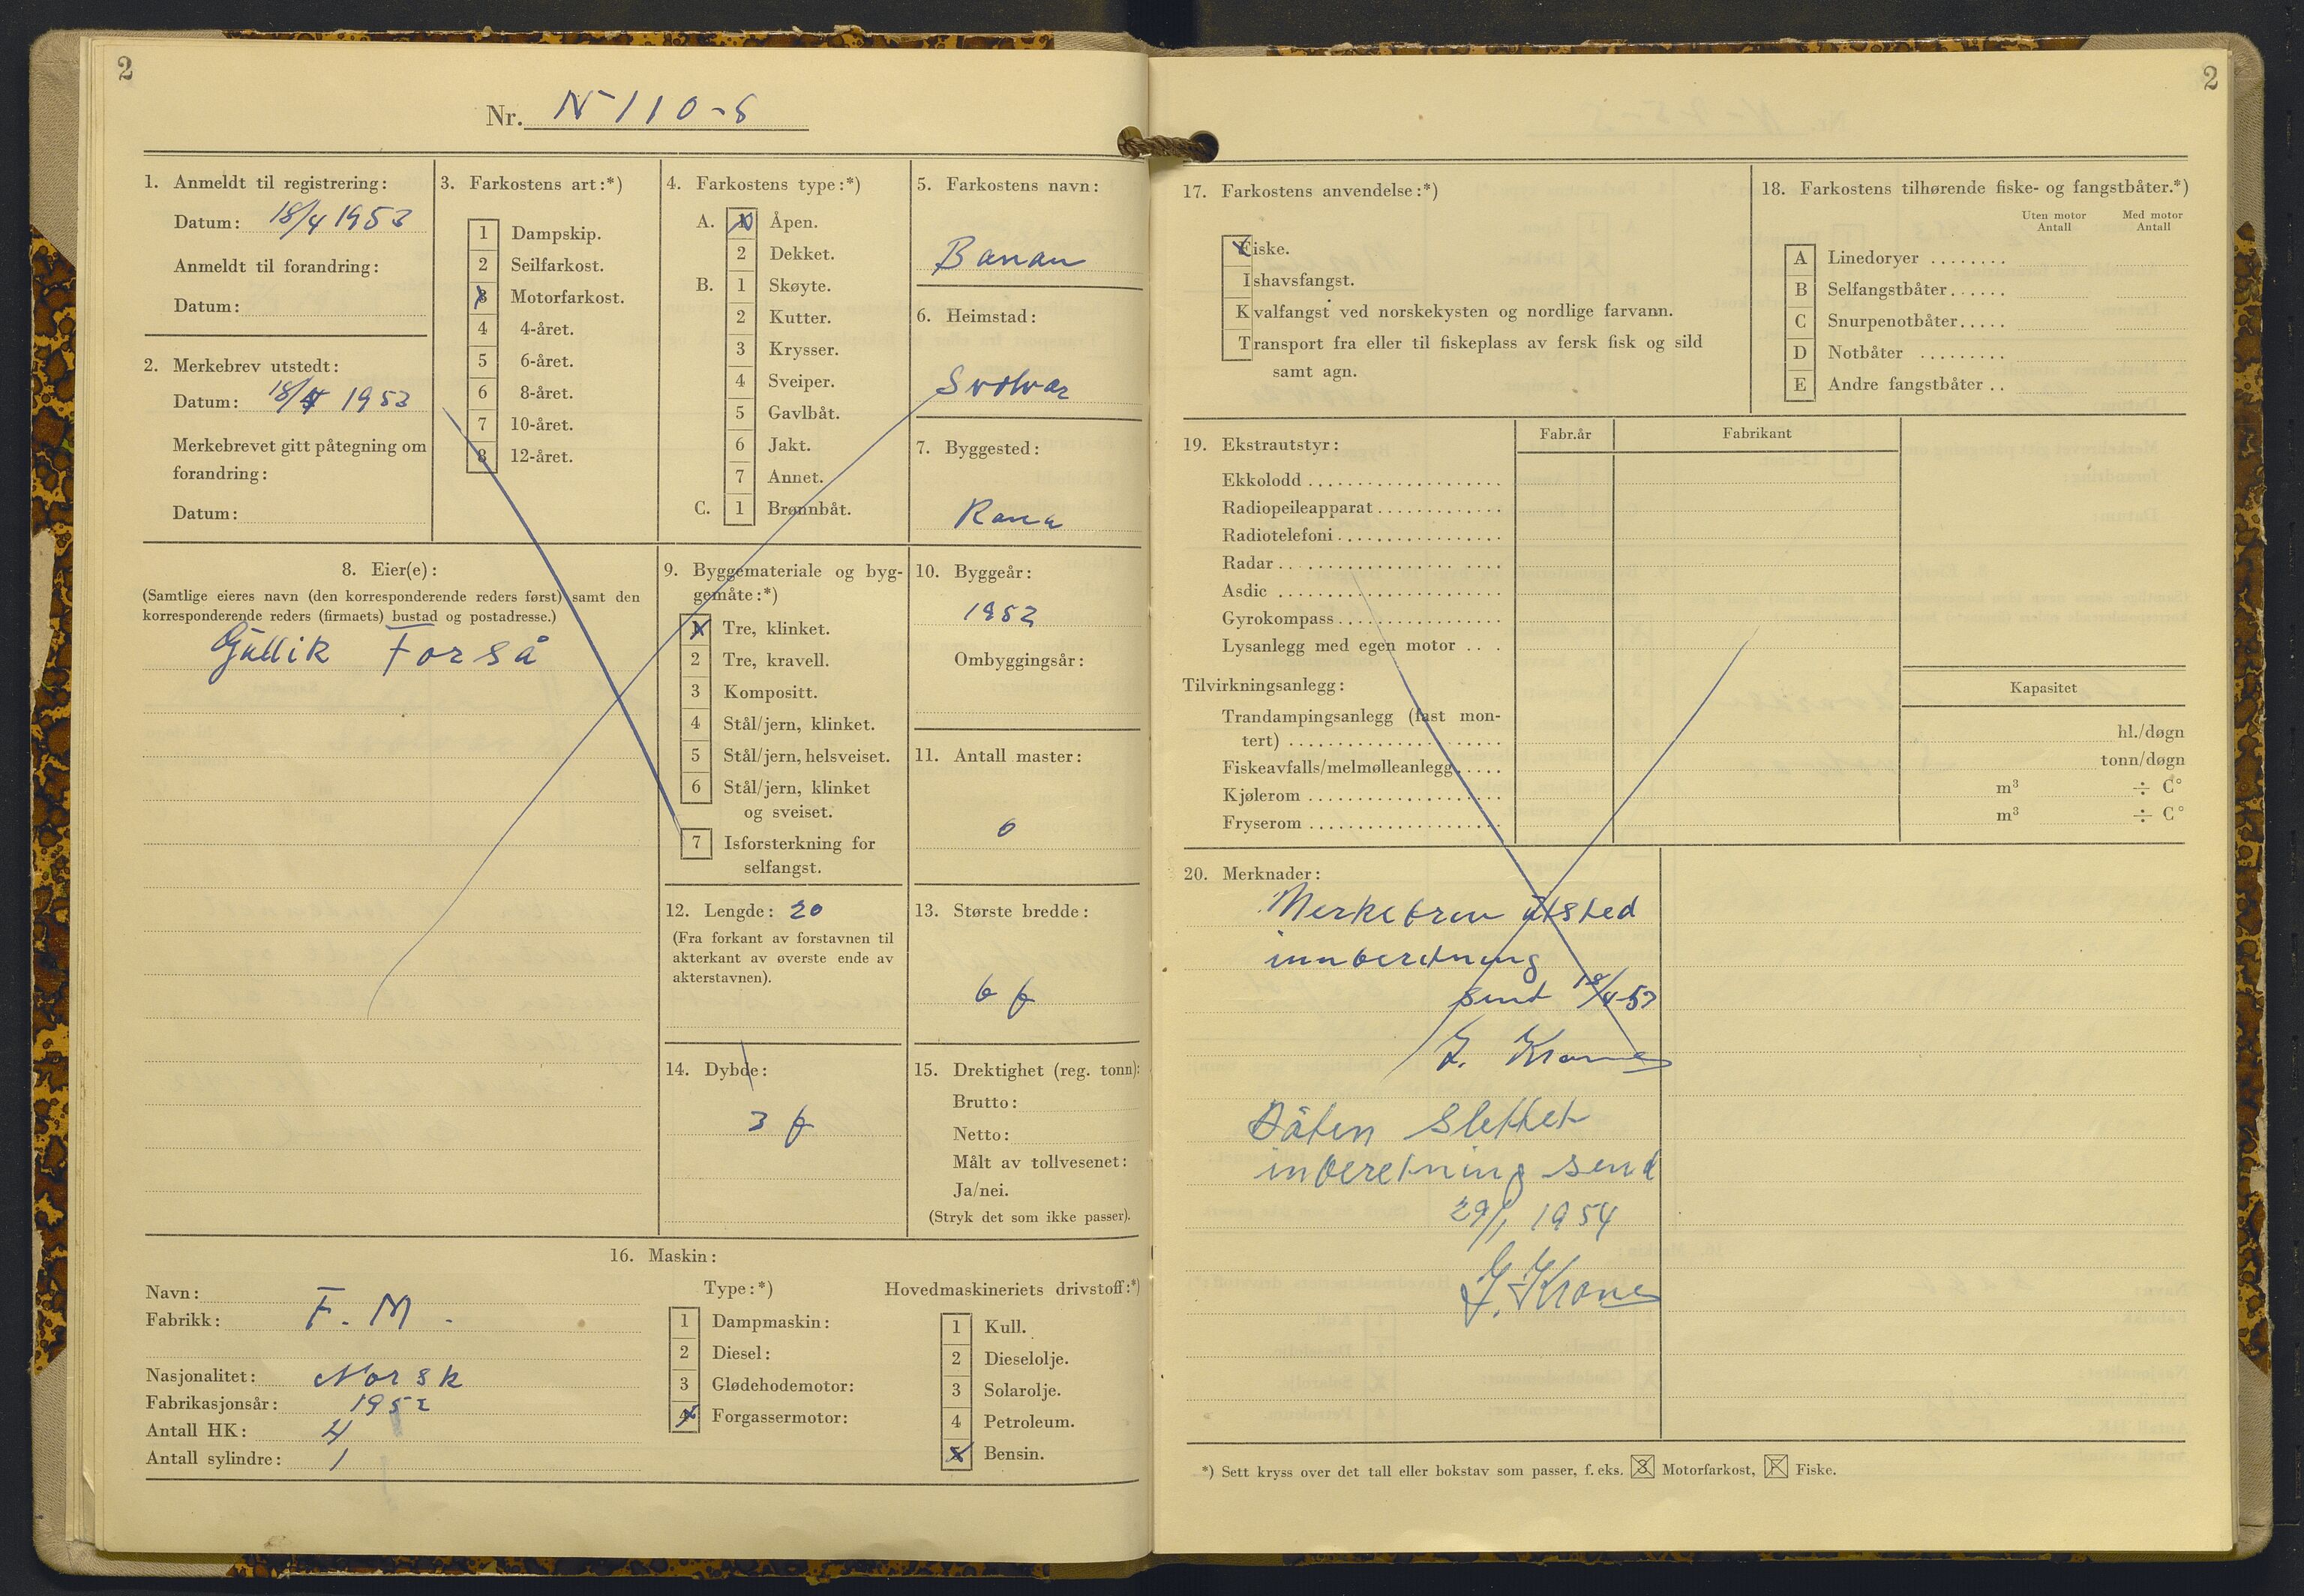 2
Nr. N 110-S
1. Anmeldt til registrering:
Datum: 18/4 1953
Anmeldt til forandring:
Datum:
2. Merkebrev utstedt:
Datum: 18/4 1953
Merkebrevet gitt påtegning om
forandring:
Datum:
3. Farkostens art:*)
1 Dampskip.
2 Seilfarkost.
3 Motorfarkost.
4 4-året.
5 6-året.
6 8-året.
7 10-året.
8 12-året.
4. Farkostens type:*)
A. 1 Åpen.
2 Dekket.
B. 1 Skøyte.
2 Kutter.
3 Krysser.
4 Sveiper.
5 Gavlbåt.
6 Jakt.
7 Annet.
C. 1 Brønnbåt.
5. Farkostens navn:
Banan
6. Heimstad:
Svolvær
7. Byggested:
Rana
8. Eier(e):
(Samtlige eieres navn (den korresponderende reders først) samt den
korresponderende reders (firmaets) bustad og postadresse.)
Gullik Forså
9. Byggemateriale og byg-
gemåte:*)
1 Tre, klinket.
2 Tre, kravell.
3 Kompositt.
4 Stål/jern, klinket.
5 Stål/jern, helsveiset.
6 Stål/jern, klinket
og sveiset.
7 Isforsterkning for
selfangst.
10. Byggeår:
1952
Ombyggingsår:
11. Antall master:
0
12. Lengde: 20
(Fra forkant av forstavnen til
akterkant av øverste ende av
akterstavnen).
13. Største bredde:
6 f
14. Dybde:
3 f
15. Drektighet (reg. tonn):
Brutto:
Netto:
Målt av tollvesenet:
Ja/nei.
(Stryk det som ikke passer).
16. Maskin:
Navn:
Fabrikk: F. M.
Nasjonalitet: Norsk
Fabrikasjonsår: 1952
Antall HK: 4
Antall sylindre: 1
Type:*)
1 Dampmaskin:
2 Diesel:
3 Glødehodemotor:
4 Forgassermotor:
Hovedmaskineriets drivstoff:*)
1 Kull.
2 Dieselolje.
3 Solarolje.
4 Petroleum.
5 Bensin.
2
17. Farkostens anvendelse:*)
Fiske.
Ishavsfangst.
Kvalfangst ved norskekysten og nordlige farvann.
Transport fra eller til fiskeplass av fersk fisk og sild
samt agn.
18. Farkostens tilhørende fiske- og fangstbåter.*)
Uten motor Med motor
Antall Antall
A Linedoryer ........
B Selfangstbåter......
C Snurpenotbåter.....
D Notbåter .........
E Andre fangstbåter ..
19. Ekstrautstyr:
Fabr.år Fabrikant
Ekkolodd ....................
Radiopeileapparat .............
Radiotelefoni .................
Radar .......................
Asdic .......................
Gyrokompass .................
Lysanlegg med egen motor ...
Tilvirkningsanlegg:
Kapasitet
Trandampingsanlegg (fast mon-
tert) ...................... hl./døgn
Fiskeavfalls/melmølleanlegg ..... tonn/døgn
Kjølerom .................... m³ ÷ C°
Fryserom .................... m³ ÷ C°
20. Merknader:
Merkebrev utsted
innberetning
sent 18/4-53
J. Krane
Båten Slettet
inberetning send
29/1 1954
J. Krane
*) Sett kryss over det tall eller bokstav som passer, f. eks. 3 Motorfarkost, F Fiske.